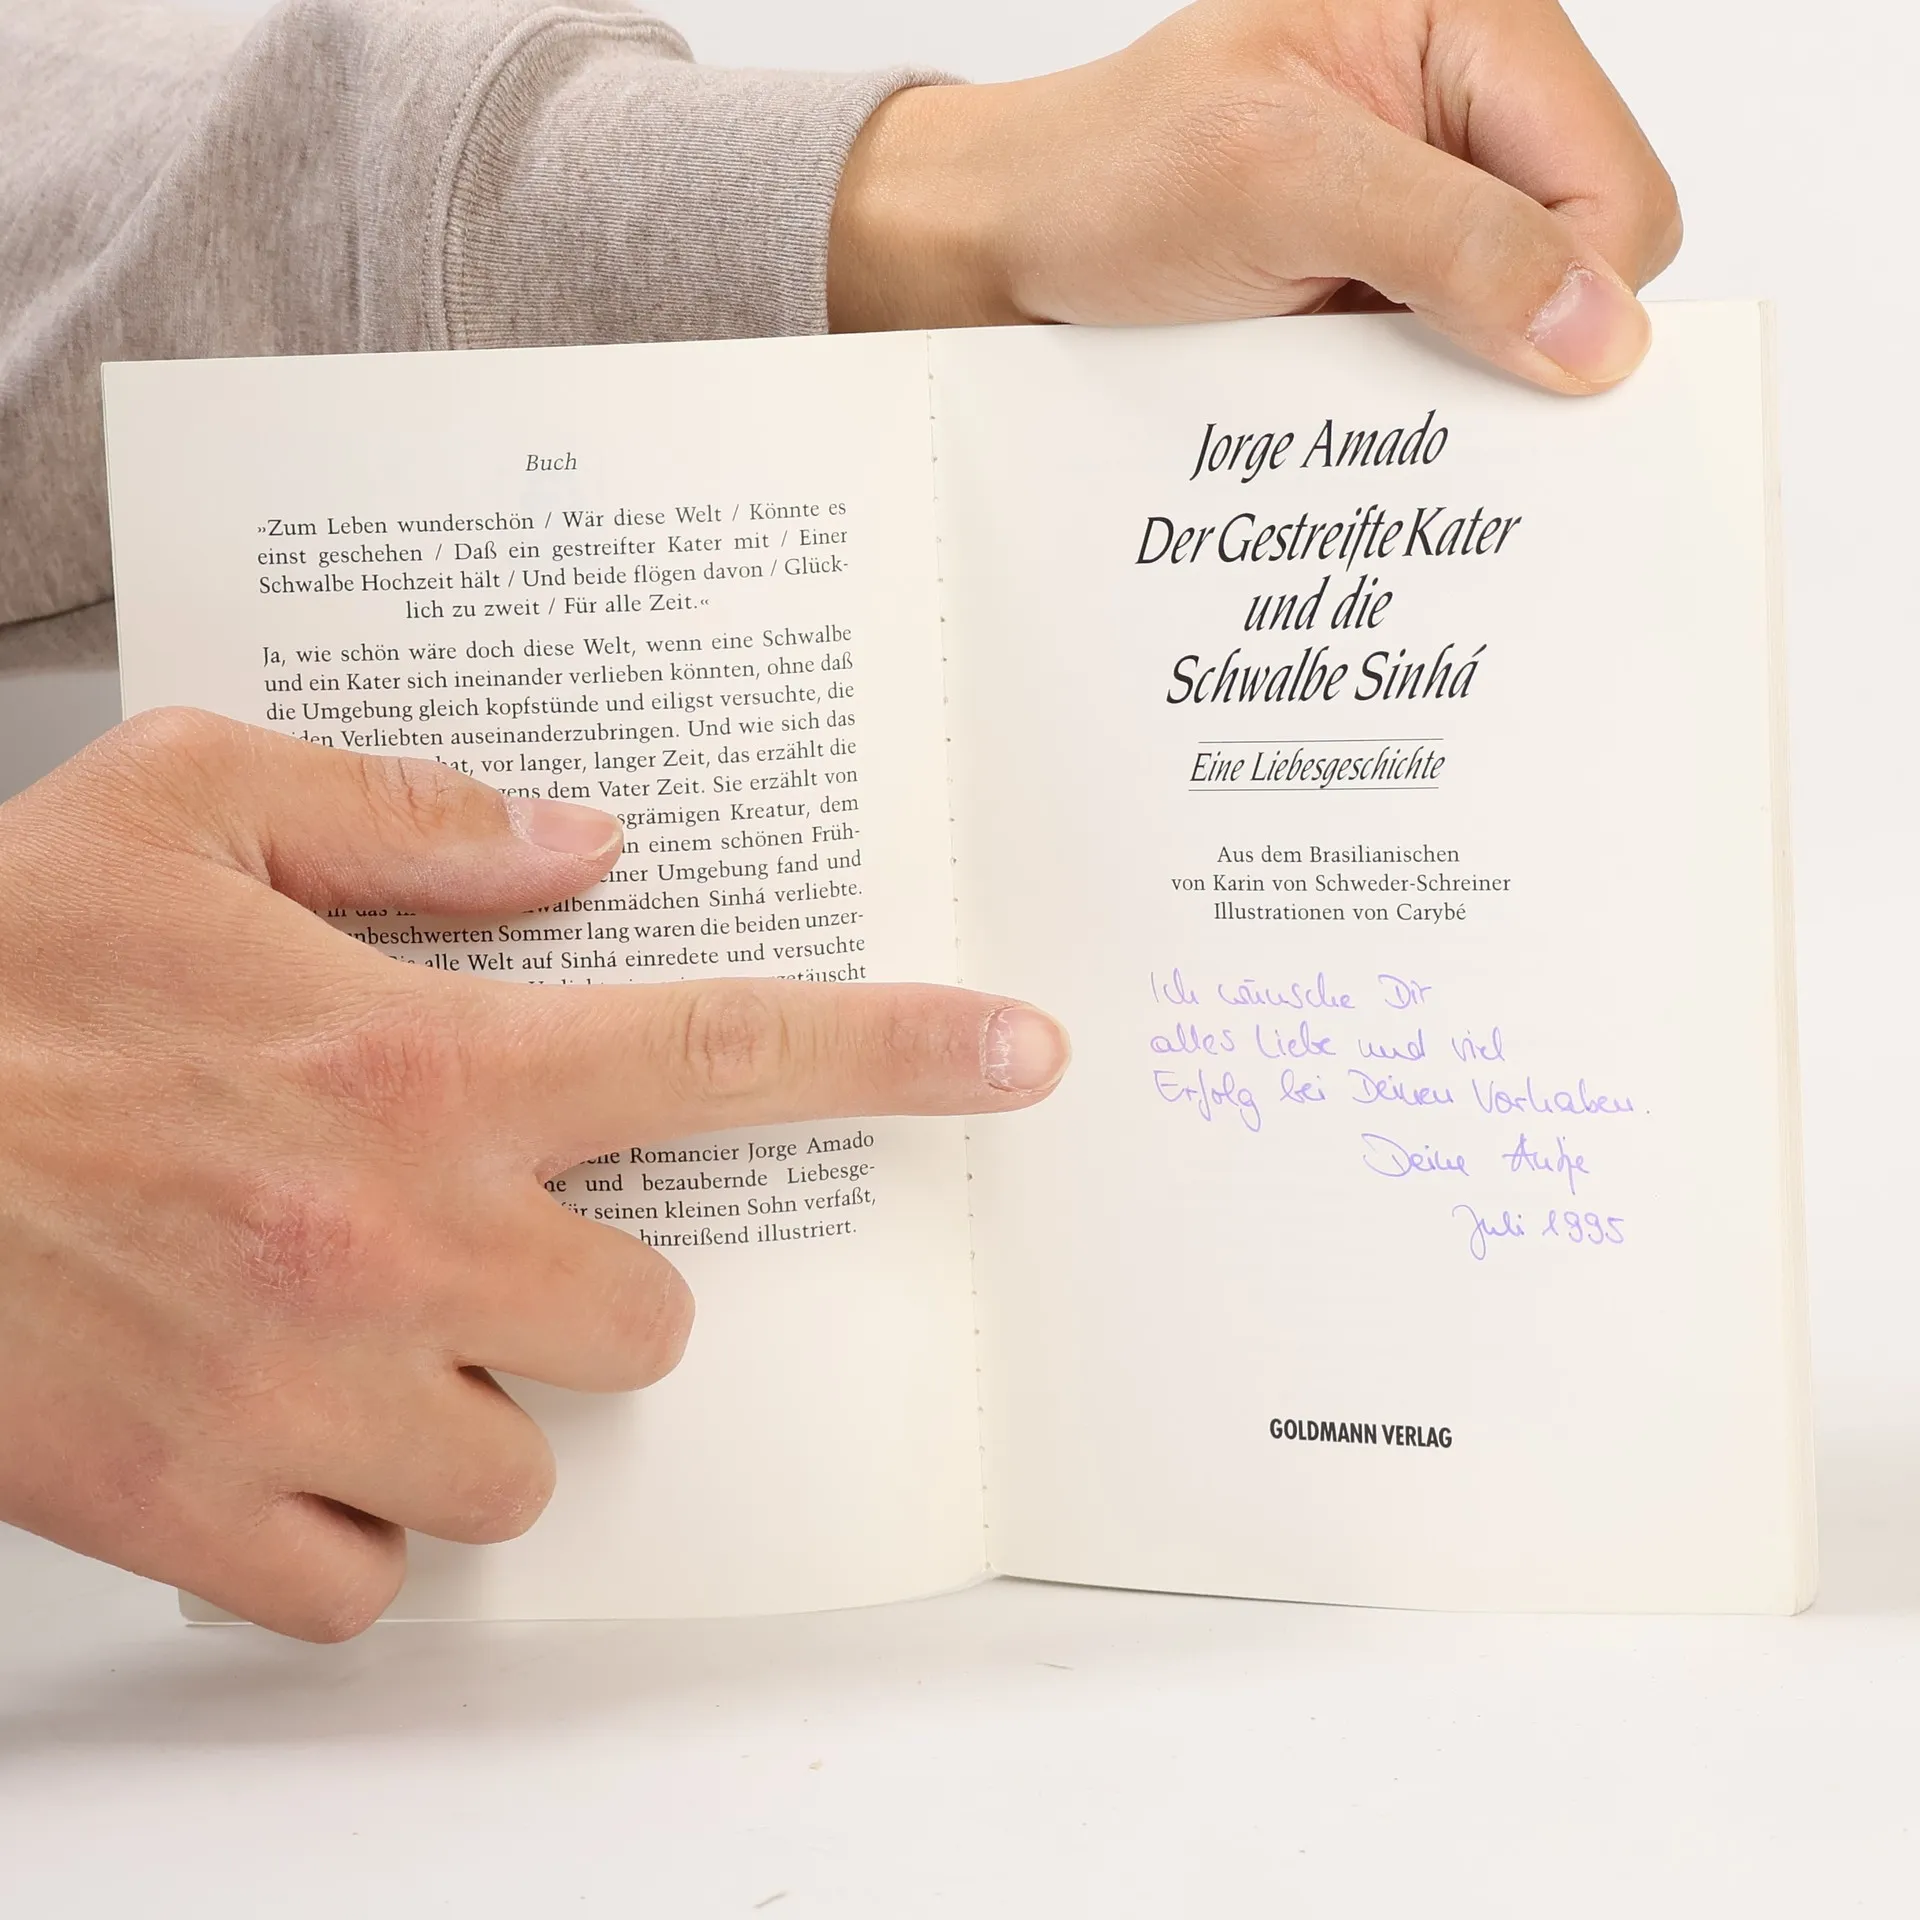 Buch
»Zum Leben wunderschön / Wär diese Welt / Könnte es
einst geschehen / Daß ein gestreifter Kater mit / Einer
Schwalbe Hochzeit hält / Und beide flögen davon / Glück-
lich zu zweit / Für alle Zeit.«
Ja, wie schön wäre doch diese Welt, wenn eine Schwalbe
und ein Kater sich ineinander verlieben könnten, ohne daß
die Umgebung gleich kopfstünde und eiligst versuchte, die
Verliebten auseinanderzubringen. Und wie sich das
vor langer, langer Zeit, das erzählt die
dem Vater Zeit. Sie erzählt von
Kreatur, dem
einem schönen Früh-
Umgebung fand und
Sinhá verliebte.
Sommer lang waren die beiden unzer-
alle Welt auf Sinhá einredete und versuchte
Romancier Jorge Amado
und bezaubernde Liebesge-
seinen kleinen Sohn verfaßt,
hinreißend illustriert.
Jorge Amado
Der Gestreifte Kater
und die
Schwalbe Sinhá
Eine Liebesgeschichte
Aus dem Brasilianischen
von Karin von Schweder-Schreiner
Illustrationen von Carybé
Ich wünsche Dir
alles Liebe und viel
Erfolg bei Deinen Vorhaben.
Deine Antje
Juli 1995
GOLDMANN VERLAG